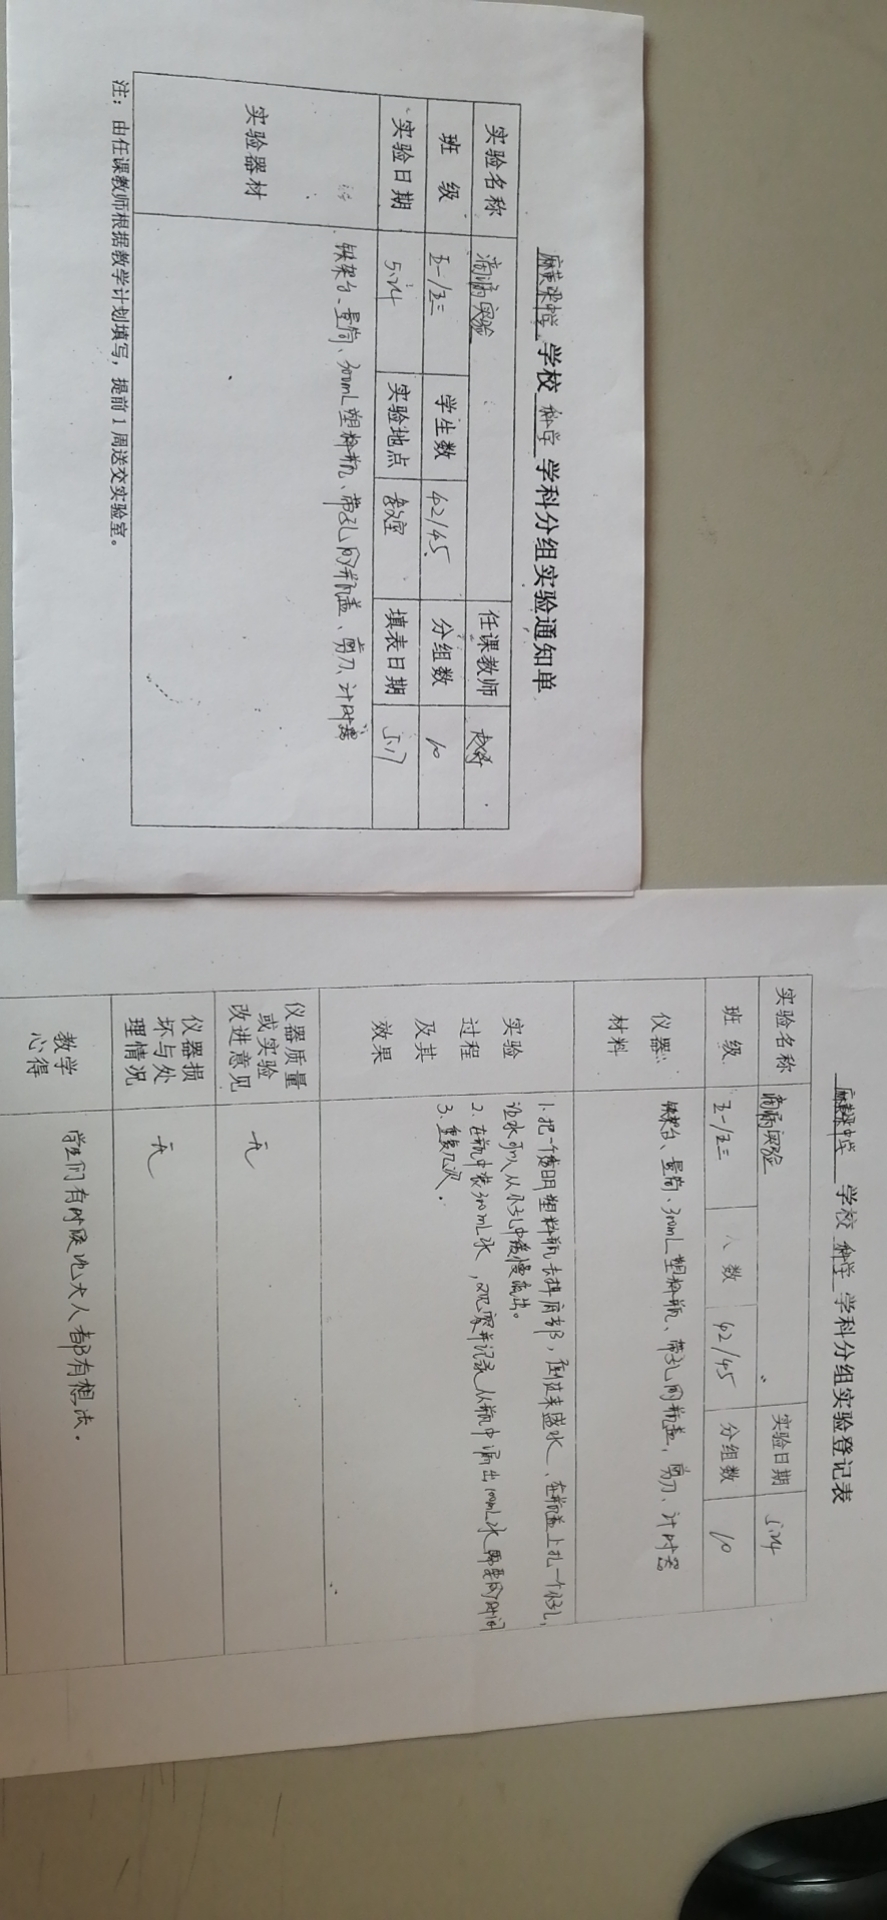 麻黄梁中学 学校 科学 学科分组实验通知单
实验名称 滴漏实验 任课教师
班 级 五一/五二 学生数 42/45 分组数 10
实验日期 5.24 实验地点 教室 填表日期 5.17
实验器材 铁架台、量筒、300mL塑料瓶、带孔的瓶盖、剪刀、计时器
注：由任课教师根据教学计划填写，提前1周送交实验室。
麻黄梁中学 学校 科学 学科分组实验登记表
实验名称 滴漏实验 实验日期 5.24
班 级 五一/五二 人 数 42/45 分组数 10
仪器
材料
铁架台、量筒、300mL塑料瓶、带孔的瓶盖、剪刀、计时器
实验
过程
及其
效果
1.把一个透明塑料瓶去掉底部，倒过来盛水、在瓶盖上扎一个小孔，
让水可以从小孔中缓慢流出。
2.在瓶中装300mL水，观察并记录从瓶中漏出100mL水需要的时间
3.重复几次.
仪器质量
或实验
改进意见
无
仪器损
坏与处
理情况
无
教学
心得
学生们有时候比大人都有想法.